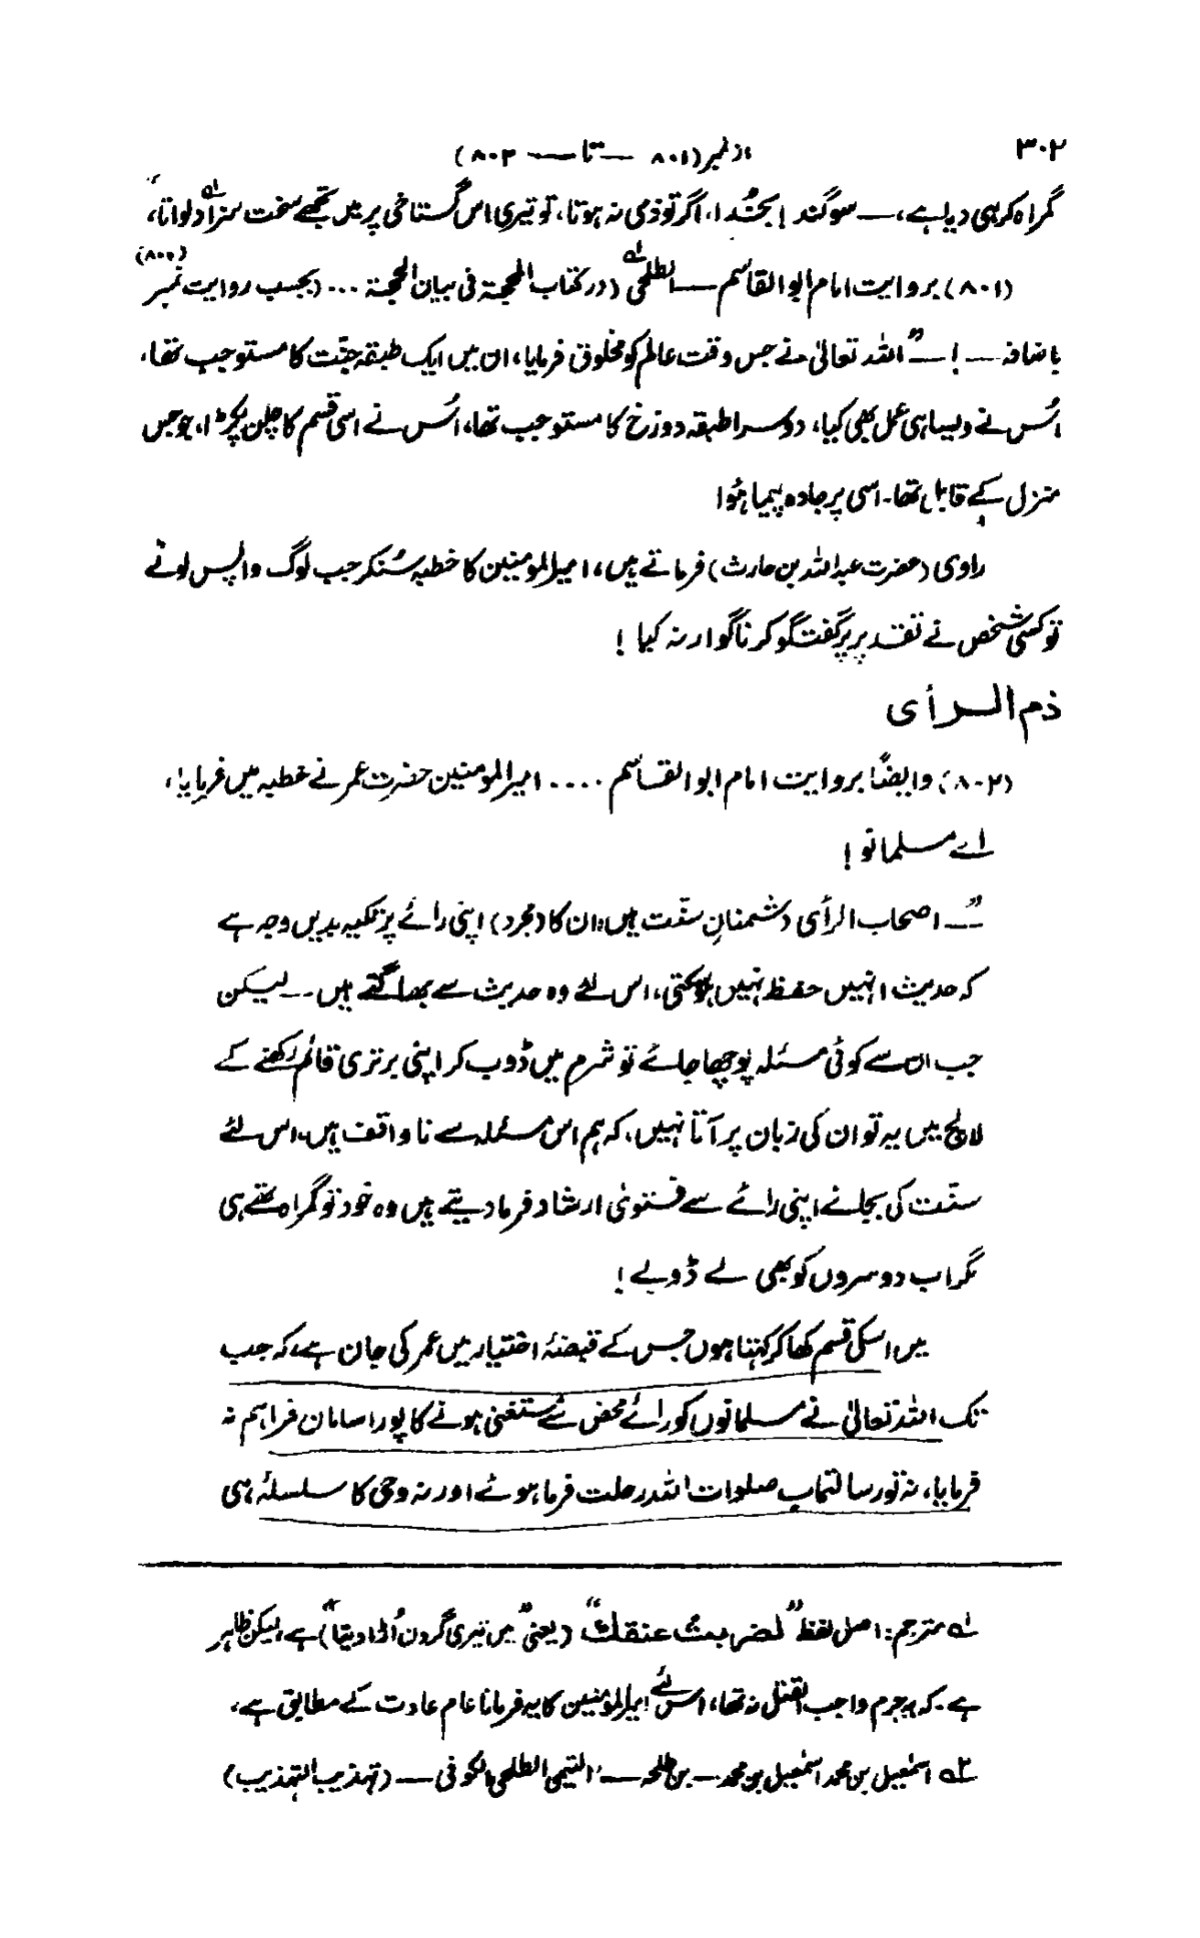 ۳۰۲
از نمبر (۸۰۱ — تا — ۸۰۲)
گمراہ کر ہی دیا ہے، — سوگند بخُدا، اگر تو ذمی نہ ہوتا، تو تیری اس گستاخی پر میں تجھے سخت سزا دلواتا،
(۸۰۱) بروایت امام ابوالقاسم — الطلحی (در کتاب الحجۃ فی بیان المحجۃ ... (بحسب روایت نمبر (۸۰۰)
باضافہ — ! — ”اللہ تعالیٰ نے جس وقت عالم کو مخلوق فرمایا، ان میں ایک طبقہ جنّت کا مستوجب تھا،
اُس نے ویسا ہی عمل بھی کیا، دوسرا طبقہ دوزخ کا مستوجب تھا، اُس نے اسی قسم کا چلن پکڑا، جو جس
منزل کے قابل تھا۔ اسی پر جادہ پیما ہُوا
راوی (حضرت عبداللہ بن حارث) فرماتے ہیں، امیرالمومنین کا خطبہ سُنکر جب لوگ واپس لوٹے
تو کسی شخص نے تقدیر پر گفتگو کرنا گوارہ نہ کیا !
ذم الرأی
(۸۰۲) وایضًا بروایت امام ابوالقاسم .... امیرالمومنین حضرت عمر نے خطبہ میں فرمایا،
اے مسلمانو !
”— اصحاب الرأی دشمنانِ سنّت ہیں، ان کا (مجرد) اپنی رائے پر تکیہ بدیں وجہ ہے
کہ حدیث انہیں حفظ نہیں ہوسکتی، اس لئے وہ حدیث سے بھاگتے ہیں — لیکن
جب ان سے کوئی مسئلہ پوچھا جائے تو شرم میں ڈوب کر اپنی برتری قائم رکھنے کے
لالچ میں یہ تو ان کی زبان پر آتا نہیں، کہ ہم اس مسئلہ سے ناواقف ہیں، اس لئے
سنّت کی بجائے اپنی رائے سے فتویٰ ارشاد فرما دیتے ہیں وہ خود تو گمراہ تھے ہی
مگر اب دوسروں کو بھی لے ڈوبے !
میں اسکی قسم کھا کر کہتا ہوں جس کے قبضۂ اختیار میں عمر کی جان ہے، کہ جب
تک اللہ تعالیٰ نے مسلمانوں کو رائے محض سے مستغنی ہونے کا پورا سامان فراہم نہ
فرمایا، نہ تو رسالتماب صلوات اللہ رحلت فرما ہوئے اور نہ وحی کا سلسلہ ہی
لہ مترجم: اصل لفظ ”لضربت عنقک“ (یعنی ”میں تیری گردن اُڑا دیتا“) ہے، لیکن ظاہر
ہے۔ کہ یہ جرم واجب القتل نہ تھا، اس لئے امیرالمومنین کا یہ فرمانا عام عادت کے مطابق ہے،
۲ہ اسمٰعیل بن محمد اسمٰعیل بن محمد — بن طلحہ — التیمی الطلحی الکوفی — (تہذیب التہذیب)